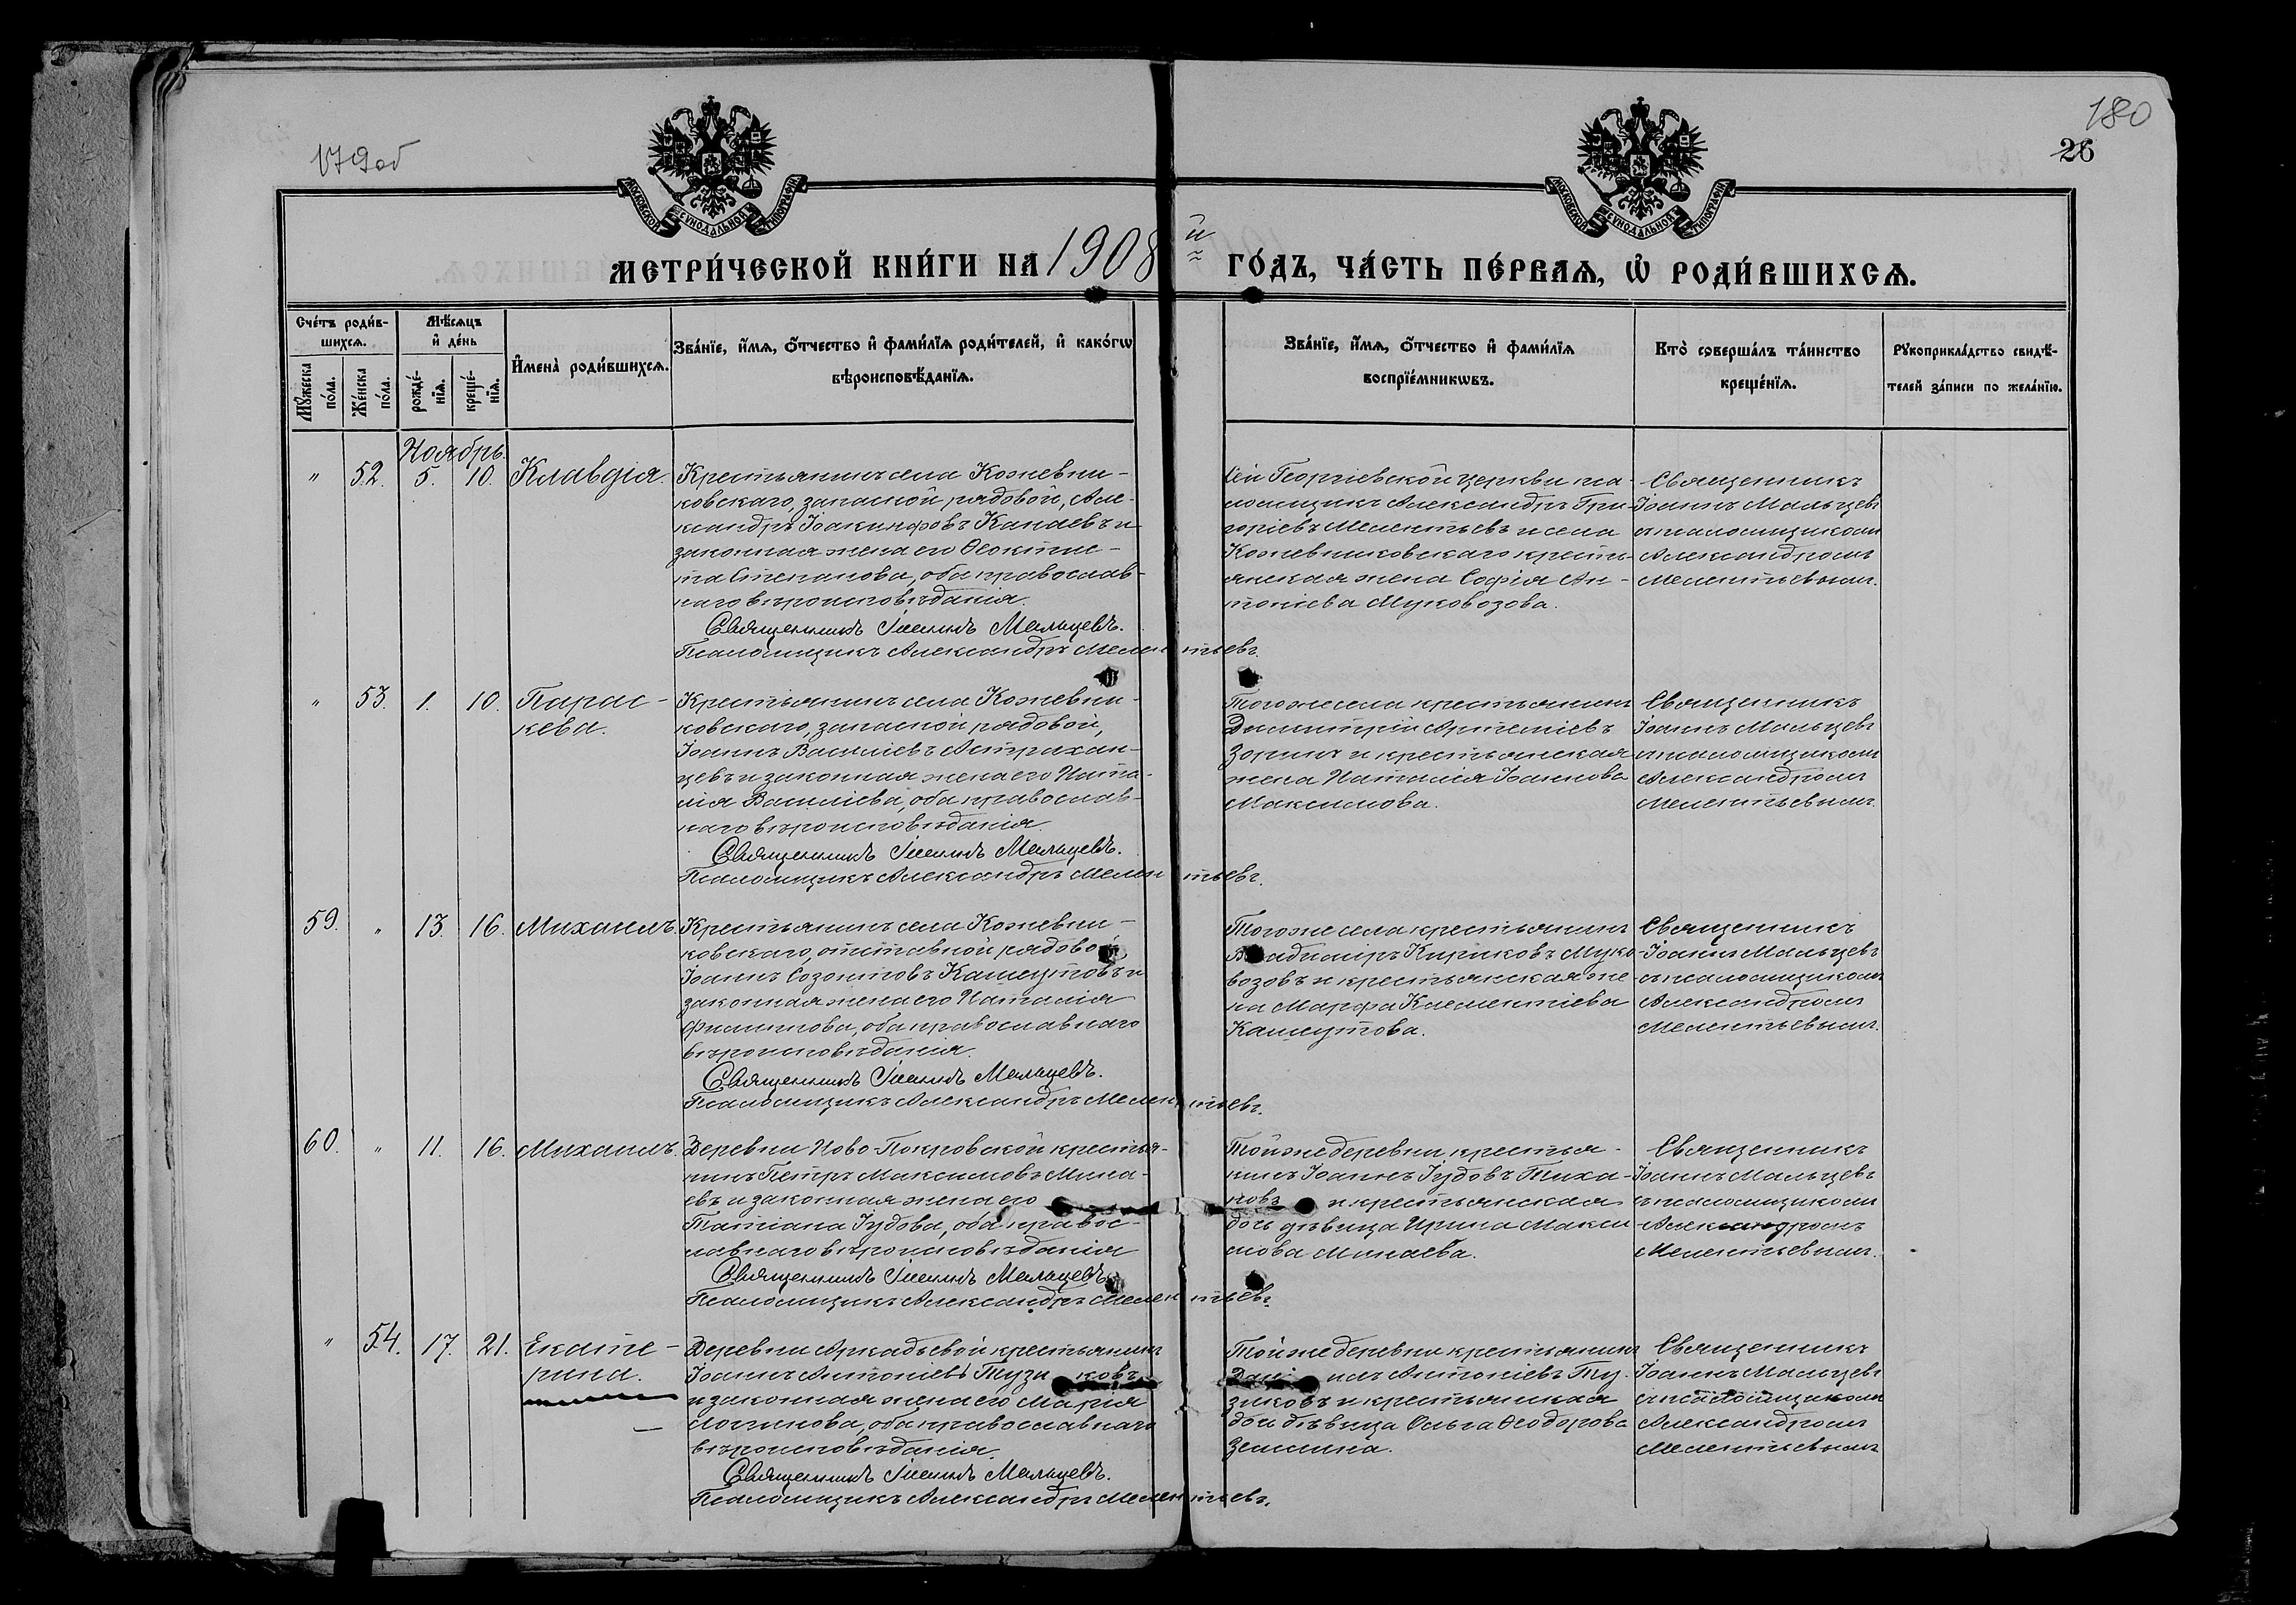 179об
180
26
МОСКОВСКОЙ СѴНОДАЛЬНОЙ ТИПОГРАФІИ
МОСКОВСКОЙ СѴНОДАЛЬНОЙ ТИПОГРАФІИ
МЕТРИ́ЧЕСКОЙ КНИ́ГИ НА 1908й ГО́ДЪ, ЧА́СТЬ ПЕ́РВАѦ, Ѡ҆ РОДИ́ВШИХСѦ.
Сче́тъ роди́в-
шихсѧ.
Мꙋ́жеска по́ла.
Же́нска по́ла.
Мѣ́сѧцъ
и҆ де́нь
рожде́-
нїѧ.
креще́-
нїѧ.
И҆мена̀ роди́вшихсѧ.
Зва́нїе, и҆́мѧ, ѻ҆́тчество и҆ фами́лїѧ роди́телей, и҆ како́гѡ
вѣроисповѣ́данїѧ.
Зва́нїе, и҆́мѧ, ѻ҆́тчество и҆ фами́лїѧ
воспрїе́мникѡвъ.
Кто̀ соверша́лъ та́инство
креще́нїѧ.
Рꙋкоприкла́дство свидѣ́-
телей за́писи по жела́нїю.
Ноябрь.
" 52. 5. 10. Клавдія.
Крестьянинъ села Кожевни-
ковскаго, запасной рядовой, Але-
ксандръ Іоакинфовъ Канаевъ и
законная жена его Ѳеоктис-
та Степанова, оба православ-
наго вѣроисповѣданія.
Священникъ Іоаннъ Мальцевъ.
Псаломщикъ Александръ Мелентьевъ.
Сей Георгіевской церкви пса-
ломщикъ Александръ Гри-
горіевъ Мелентьевъ и села
Кожевниковскаго кресть-
янская жена Софія Ан-
тоніева Муковозова.
Священникъ
Іоаннъ Мальцевъ
съ псаломщикомъ
Александромъ
Мелентьевымъ.
" 53. 1. 10. Парас-
кева.
Крестьянинъ села Кожевни-
ковскаго, запасной рядовой,
Іоаннъ Василіевъ Астрахан-
цевъ и законная жена его Ната-
лія Василіева, оба православ-
наго вѣроисповѣданія.
Священникъ Іоаннъ Мальцевъ.
Псаломщикъ Александръ Мелентьевъ.
Того же села крестьянинъ
Димитрій Артеміевъ
Зоринъ и крестьянская
жена Наталія Іоаннова
Максимова.
Священникъ
Іоаннъ Мальцевъ
съ псаломщикомъ
Александромъ
Мелентьевымъ.
59. " 13. 16. Михаилъ.
Крестьянинъ села Кожевни-
ковскаго, отставной рядовой
Іоаннъ Созонтовъ Кашутовъ и
законная жена его Наталія
Филиппова, оба православнаго
вѣроисповѣданія.
Священникъ Іоаннъ Мальцевъ.
Псаломщикъ Александръ Мелентьевъ.
Того же села крестьянинъ
Владиміръ Кириковъ Муко-
возовъ и крестьянская же-
на Марѳа Клементіева
Кашутова.
Священникъ
Іоаннъ Мальцевъ
съ псаломщикомъ
Александромъ
Мелентьевымъ.
60. " 11. 16. Михаилъ.
Деревни Ново-Покровской крестья-
нинъ Петръ Максимовъ Мина-
евъ и законная жена его
Татіана Іудова, оба правос-
лавнаго вѣроисповѣданія
Священникъ Іоаннъ Мальцевъ.
Псаломщикъ Александръ Мелентьевъ.
Той же деревни крестья-
нинъ Іоаннъ Іудовъ Тиха-
новъ и крестьянская
дочь дѣвица Ирина Макси-
мова Минаева.
Священникъ
Іоаннъ Мальцевъ
съ псаломщикомъ
Александромъ
Мелентьевымъ.
" 54. 17. 21. Екате-
рина.
Деревни Аркадьевой крестьянинъ
Іоаннъ Антоніевъ Тузиковъ
и законная жена его Марія
Логгинова, оба православнаго
вѣроисповѣданія.
Священникъ Іоаннъ Мальцевъ.
Псаломщикъ Александръ Мелентьевъ.
Той же деревни крестьянинъ
Даніилъ Антоніевъ Ту-
зиковъ и крестьянская
дочь дѣвица Ольга Ѳеодорова
Зеленина.
Священникъ
Іоаннъ Мальцевъ
съ псаломщикомъ
Александромъ
Мелентьевымъ